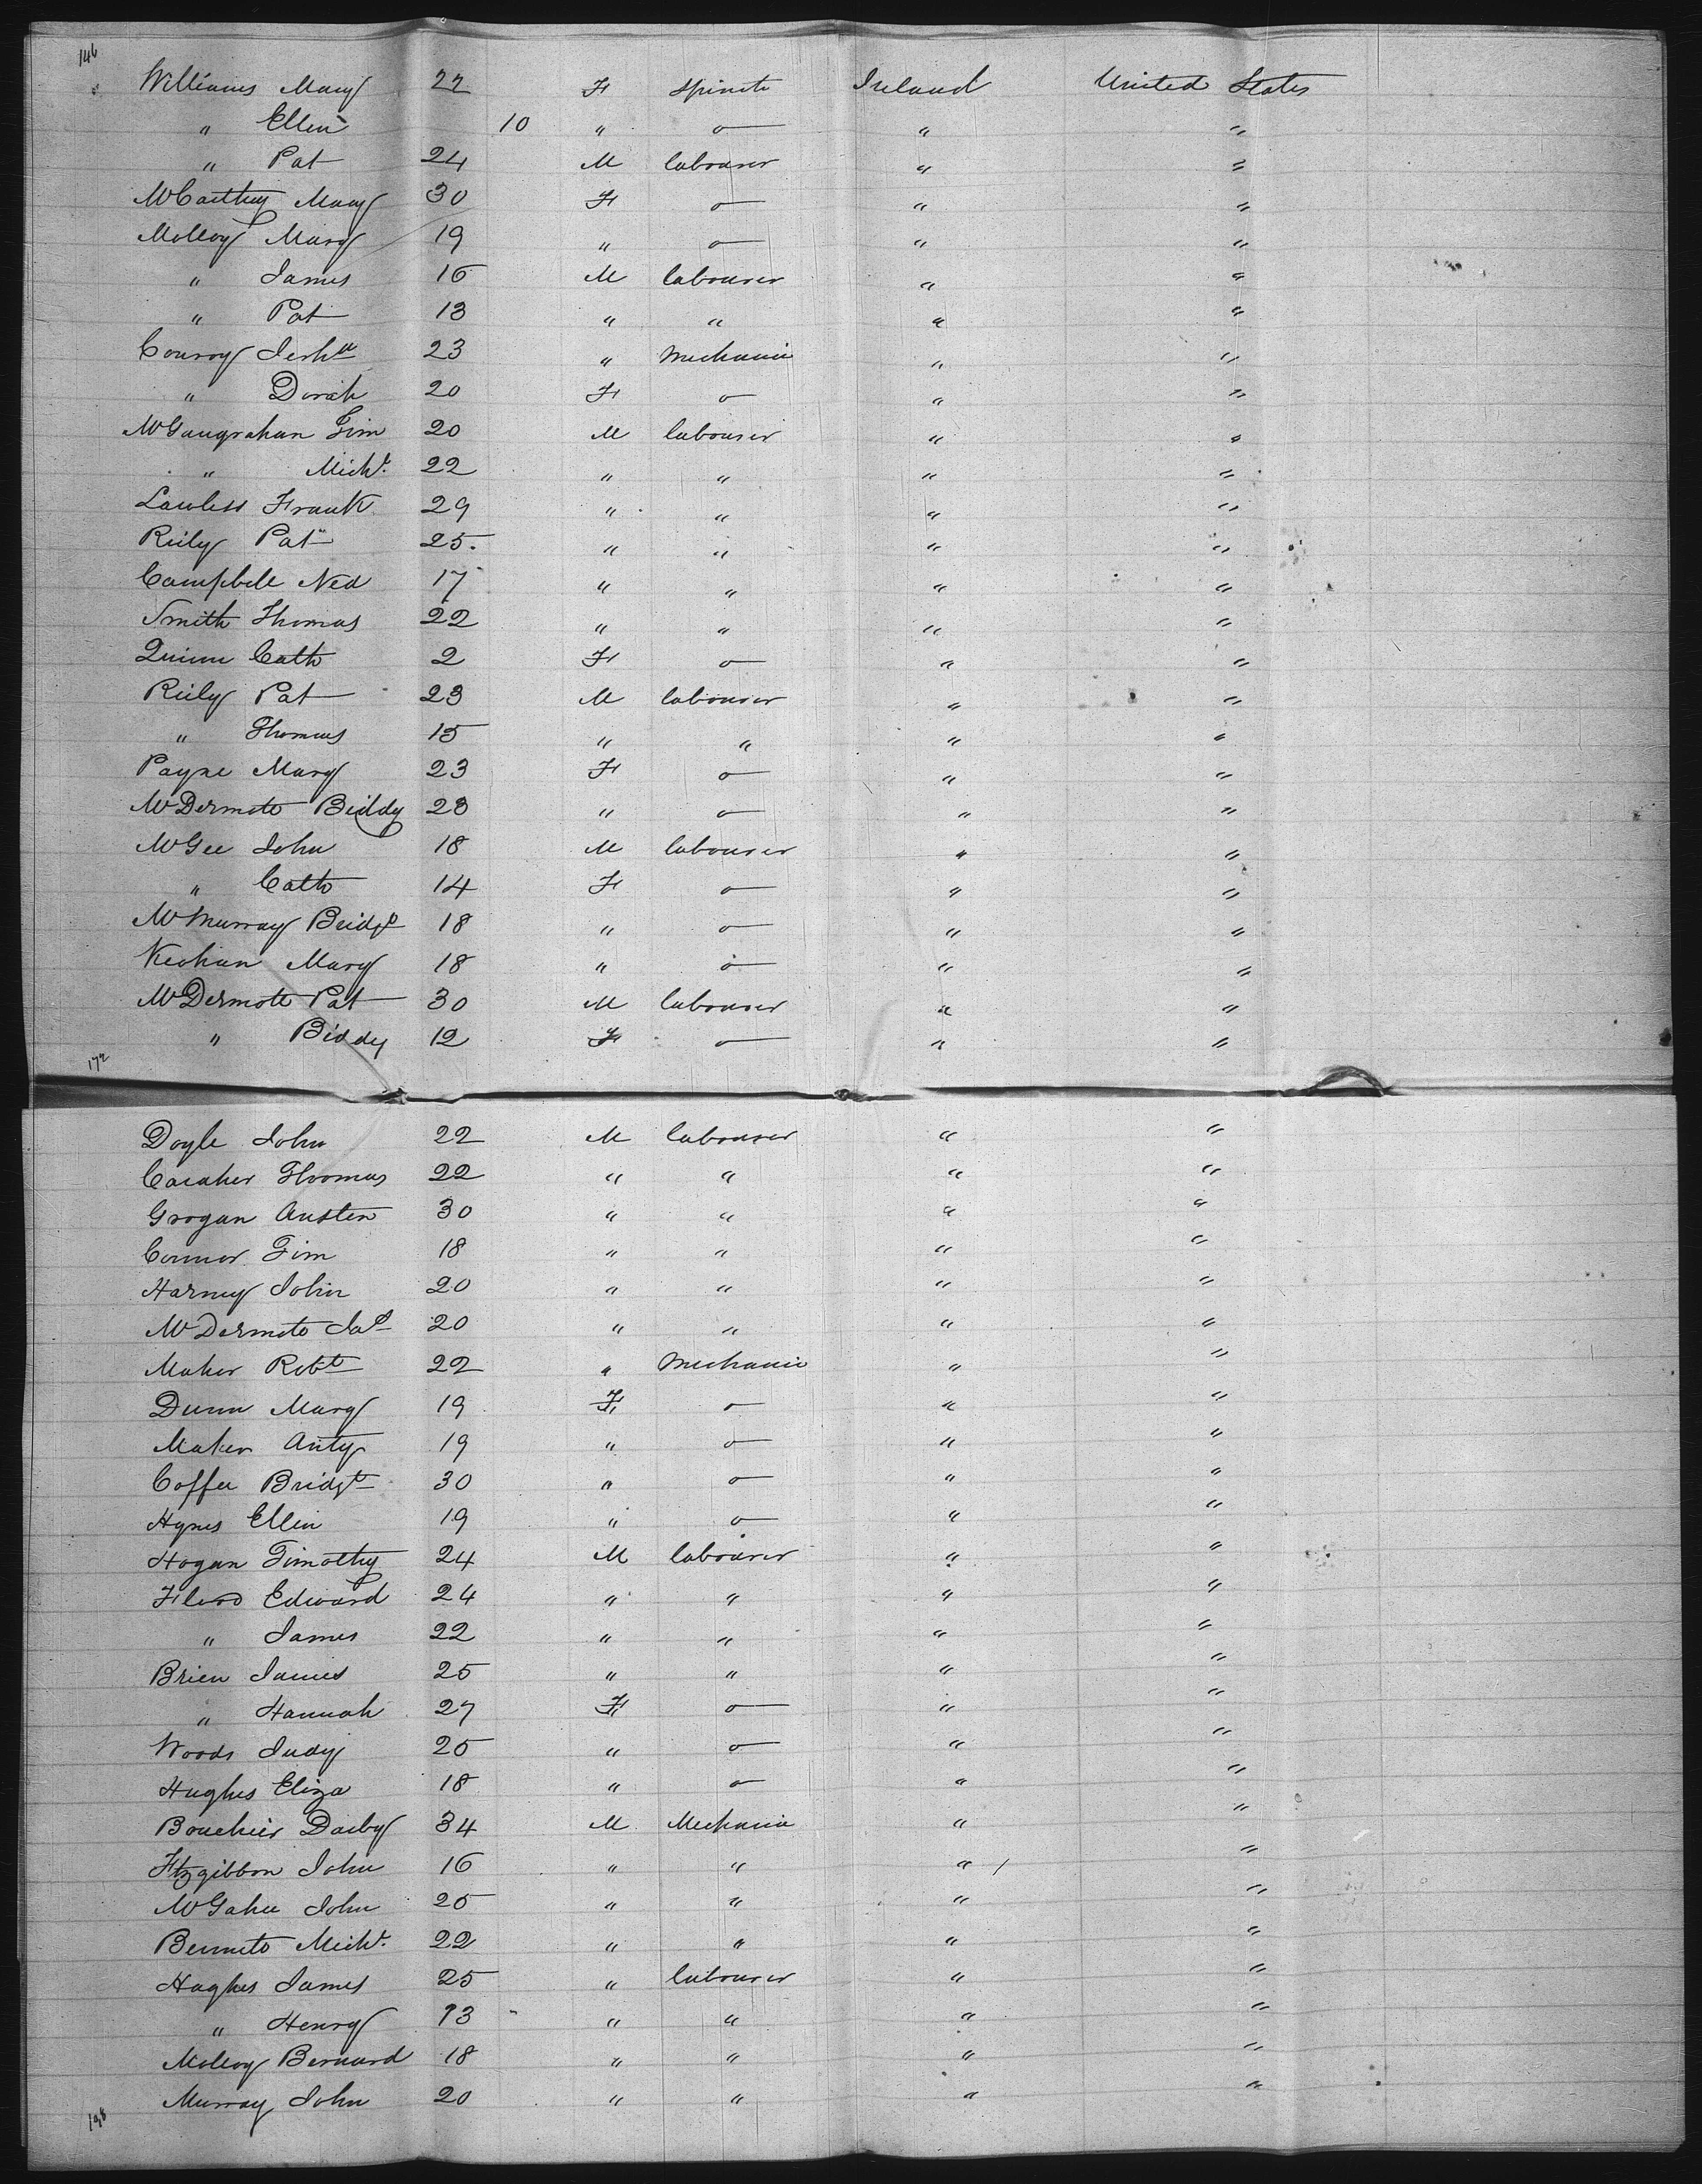 146
Williams Mary 22 F Spinstr Ireland United States
" Ellen 10 " o " "
" Pat 24 M labourer " "
McCarthy Mary 30 F o " "
Molloy Mary 19 " o " "
" James 16 M labourer " "
" Pat 13 " " " "
Conroy 23 " Mechanic " "
" Dorah 20 F o " "
McGaugrahan Tim 20 M labourer " "
" Michl. 22 " " " "
Lawless Frank 29 " " " "
Reily Pat 25. " " " "
Campbell Ned 17 " " " "
Smith Thomas 22 " " " "
Quinn Cath 2 F o " "
Reily Pat 23 M labourer " "
" Thomas 15 " " " "
Payne Mary 23 F o " "
McDermott Biddy 23 " o " "
McGee John 18 M labourer " "
" Cath 14 F o " "
McMurray Bridgt 18 " o " "
Keohan Mary 18 " o " "
McDermott Pat 30 M labourer " "
" Biddy 12 F o " "
172
Doyle John 22 M labourer " "
Caraher Thomas 22 " " " "
Grogan Austen 30 " " " "
Connor Tim 18 " " " "
Harney John 20 " " " "
McDermott Jas 20 " " " "
Maher Robt 22 " Mechanic " "
Dunn Mary 19 F o " "
Maher Anty 19 " o " "
Coffee Bridgt 30 " o " "
Hynes Ellen 19 " o " "
Hogan Timothy 24 M labourer " "
Flood Edward 24 " " " "
" James 22 " " " "
Brien James 25 " " " "
" Hannah 27 F o " "
Woods Judy 20 " o " "
Hughes Eliza 18 " o " "
Bouchier Darby 34 M Mechanic " "
Fitzgibbon John 16 " " " "
McGahee John 20 " " " "
Bennett Michl. 22 " " " "
Hughes James 25 " labourer " "
" Henry 13 " " " "
Molloy Bernard 18 " " " "
Murray John 20 " " " "
198